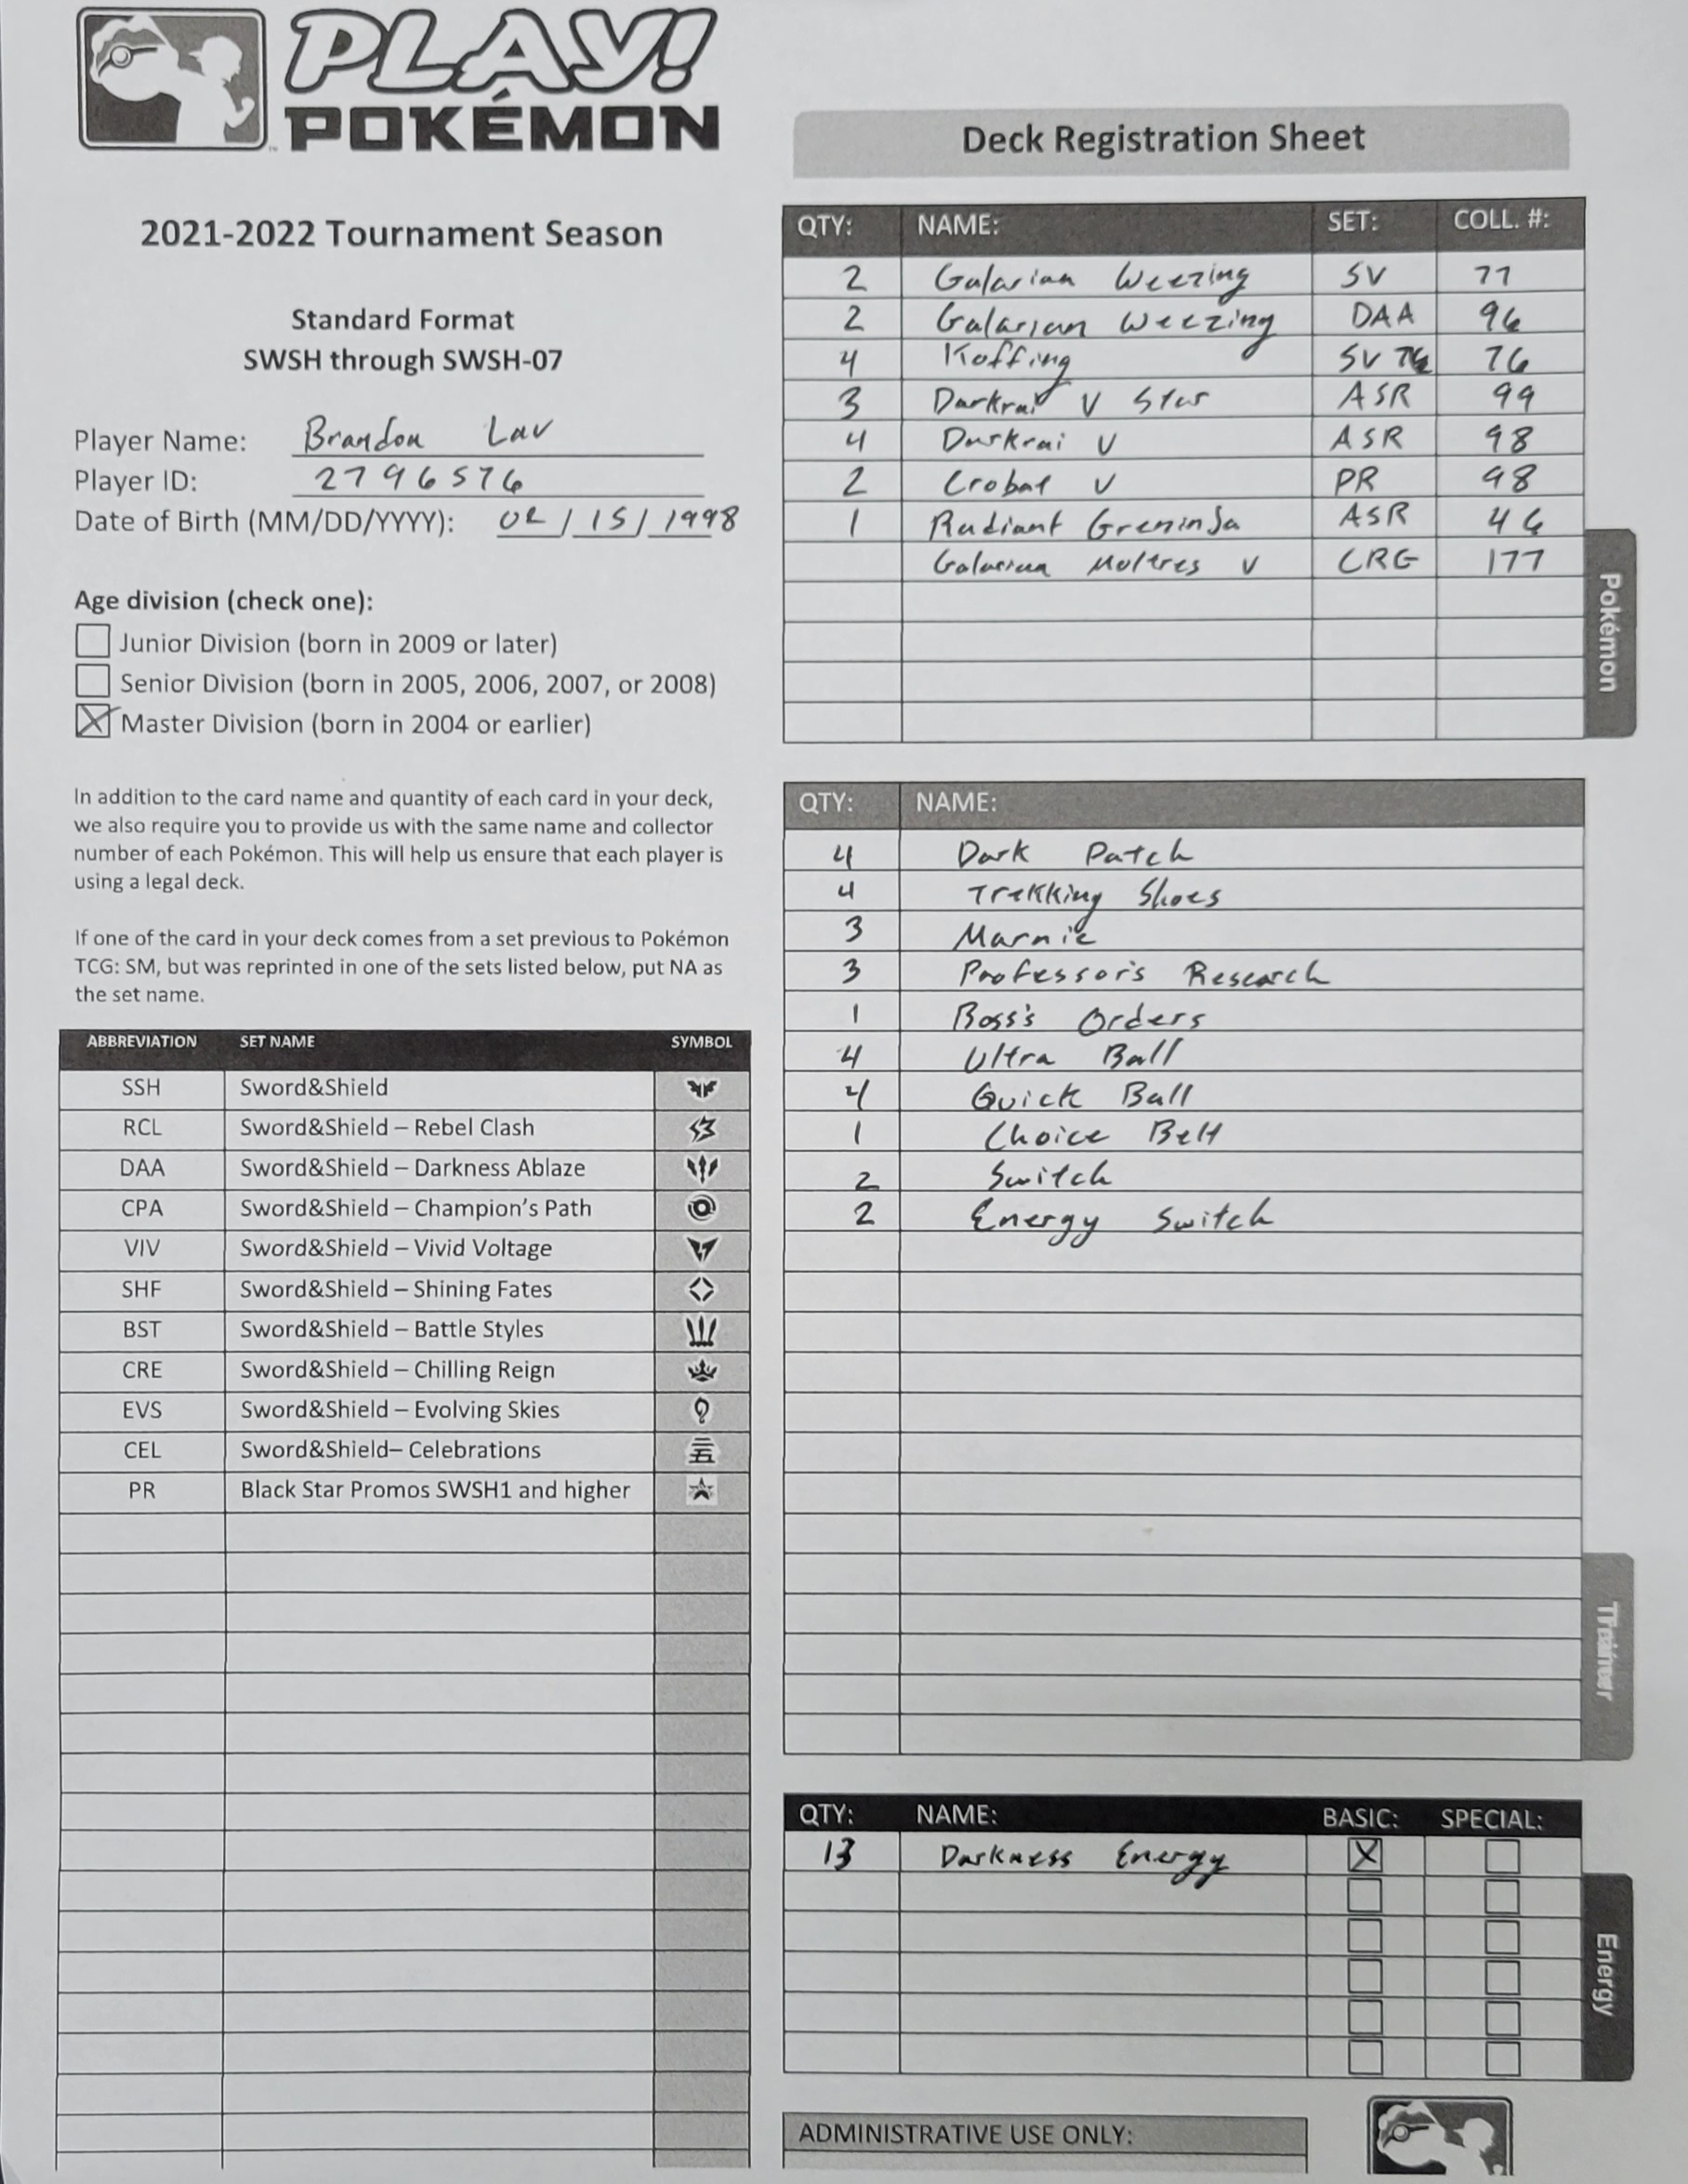 PLAY!
POKÉMON
Deck Registration Sheet
2021-2022 Tournament Season
Standard Format
SWSH through SWSH-07
Player Name: Brandon Lav
Player ID: 2796576
Date of Birth (MM/DD/YYYY): 02/15/1998
Age division (check one):
Junior Division (born in 2009 or later)
Senior Division (born in 2005, 2006, 2007, or 2008)
Master Division (born in 2004 or earlier)
In addition to the card name and quantity of each card in your deck,
we also require you to provide us with the same name and collector
number of each Pokémon. This will help us ensure that each player is
using a legal deck.
If one of the card in your deck comes from a set previous to Pokémon
TCG: SM, but was reprinted in one of the sets listed below, put NA as
the set name.
ABBREVIATION SET NAME SYMBOL
SSH Sword&Shield
RCL Sword&Shield – Rebel Clash
DAA Sword&Shield – Darkness Ablaze
CPA Sword&Shield – Champion's Path
VIV Sword&Shield – Vivid Voltage
SHF Sword&Shield – Shining Fates
BST Sword&Shield – Battle Styles
CRE Sword&Shield – Chilling Reign
EVS Sword&Shield – Evolving Skies
CEL Sword&Shield– Celebrations
PR Black Star Promos SWSH1 and higher
QTY: NAME: SET: COLL. #:
2 Galarian Weezing SV 77
2 Galarian Weezing DAA 96
4 Koffing SV 76
3 Darkrai V Star ASR 99
4 Darkrai V ASR 98
2 Crobat V PR 98
1 Radiant Greninja ASR 46
Galarian Moltres V CRG 177
Pokémon
QTY: NAME:
4 Dark Patch
4 Trekking Shoes
3 Marnie
3 Professor's Research
1 Boss's Orders
4 Ultra Ball
4 Quick Ball
1 Choice Belt
2 Switch
2 Energy Switch
Trainer
QTY: NAME: BASIC: SPECIAL:
13 Darkness Energy
Energy
ADMINISTRATIVE USE ONLY: